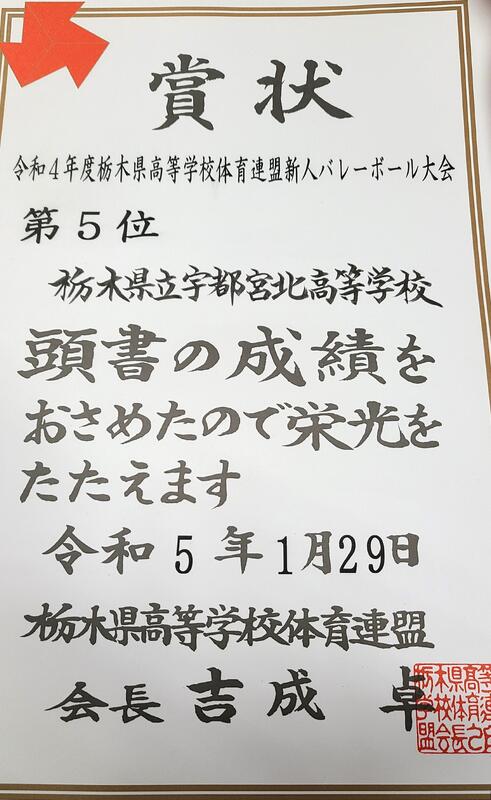 賞状
令和4年度栃木県高等学校体育連盟新人バレーボール大会
第5位
栃木県立宇都宮北高等学校
頭書の成績を
おさめたので栄光を
たたえます
令和5年1月29日
栃木県高等学校体育連盟
会長 吉成 卓
栃木県高等
学校体育連
盟会長之印